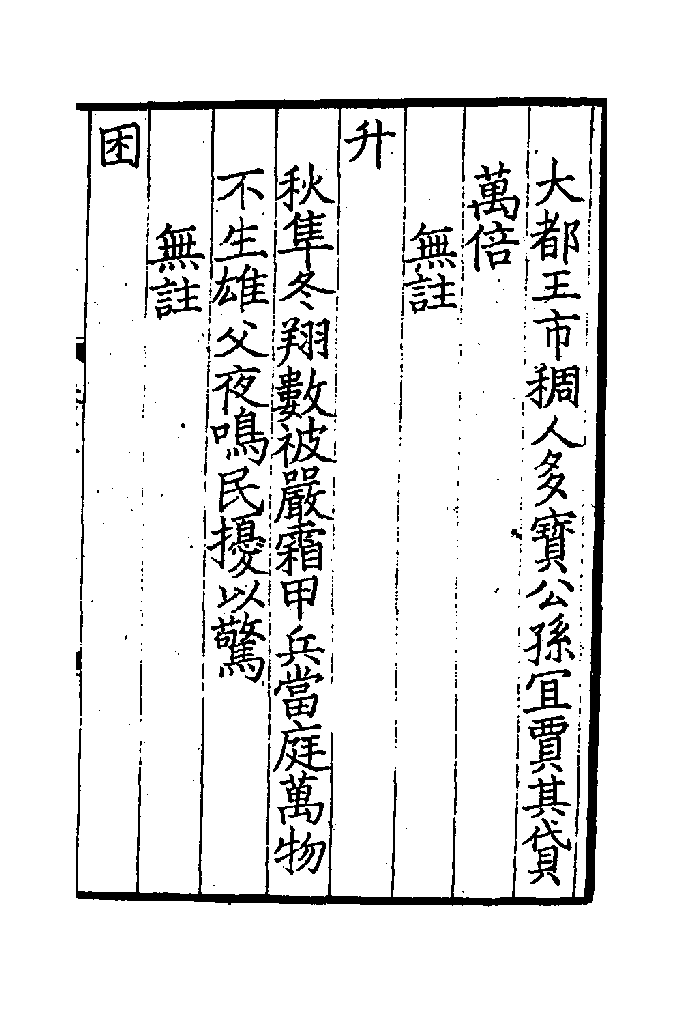 大都王市稠人多寳公孫冝賈其貸
萬倍
無註
升
秋隼冬翔數被嚴霜甲兵當庭萬物
不生雄父夜鳴民擾以驚
無註
困